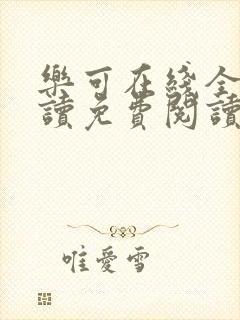 樂可在綫全
讀免費閱讀
唯愛雪